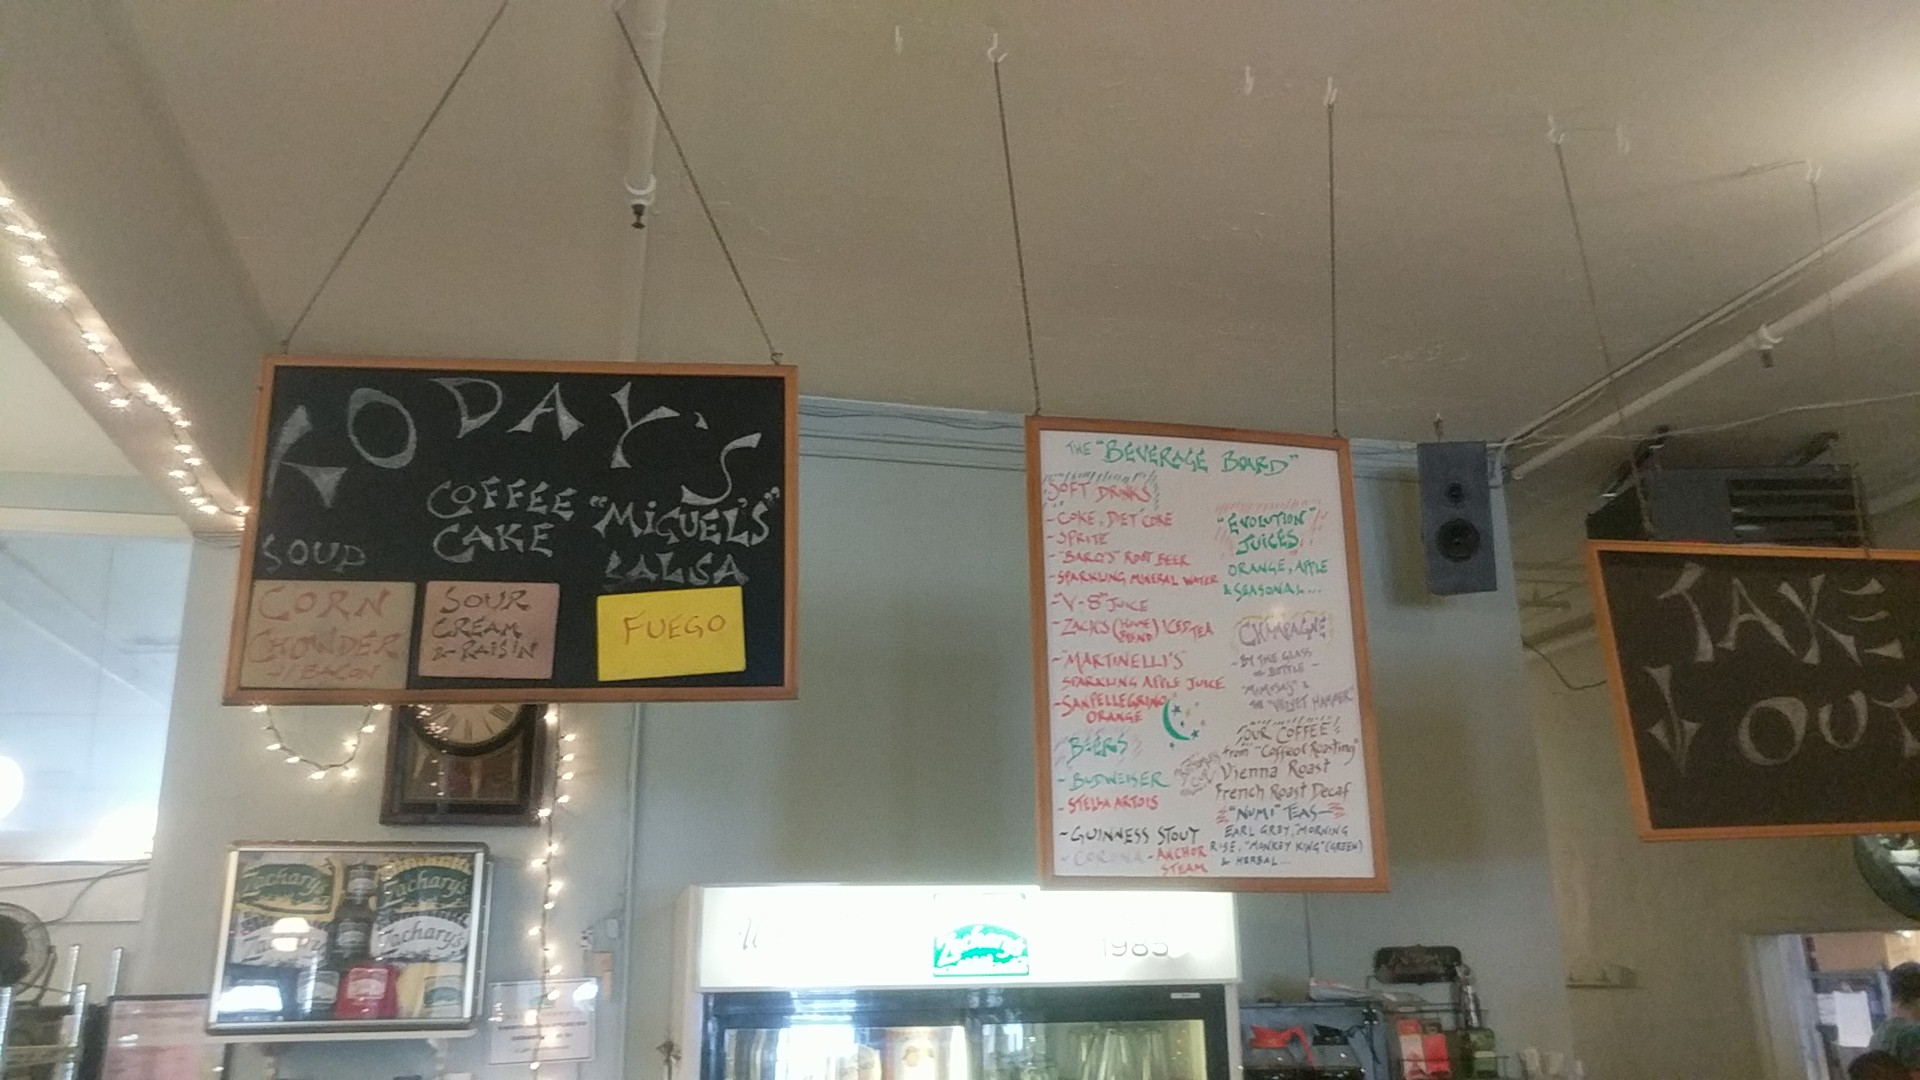 TODAY'S
SOUP
CORN
CHOWDER
w/ BACON
COFFEE
CAKE
SOUR
CREAM
& RAISIN
"MiGUEL'S"
SALSA
FUEGO
THE "BEVERAGE BOARD"
SOFT DRINKS
- COKE, DIET COKE
- SPRITE
- "BARQ'S" ROOT BEER
- SPARKLING MINERAL WATER
- "V-8" JUICE
- ZACH'S (HOUSE BLEND) ICED TEA
- "MARTINELLI'S"
SPARKLING APPLE JUICE
- SANPELLEGRINO
ORANGE
BEERS
- BUDWEISER
- STELLA ARTOIS
- GUINNESS STOUT
- CORONA - ANCHOR
STEAM
"EVOLUTION"
JUICES
ORANGE, APPLE
& SEASONAL...
CHAMPAGNE
- BY THE GLASS
or BOTTLE -
"MIMOSAS" &
THE "VELVET HAMMER"
OUR COFFEE
from "Coffeol Roasting"
Vienna Roast
French Roast Decaf
"NUMI" TEAS
EARL GREY, "MORNING
RISE, "MONKEY KING" (GREEN)
& HERBAL...
TAKE
OUT
Zachary's
Zachary's
Zachary's
Zachary's
Zachary's
1985